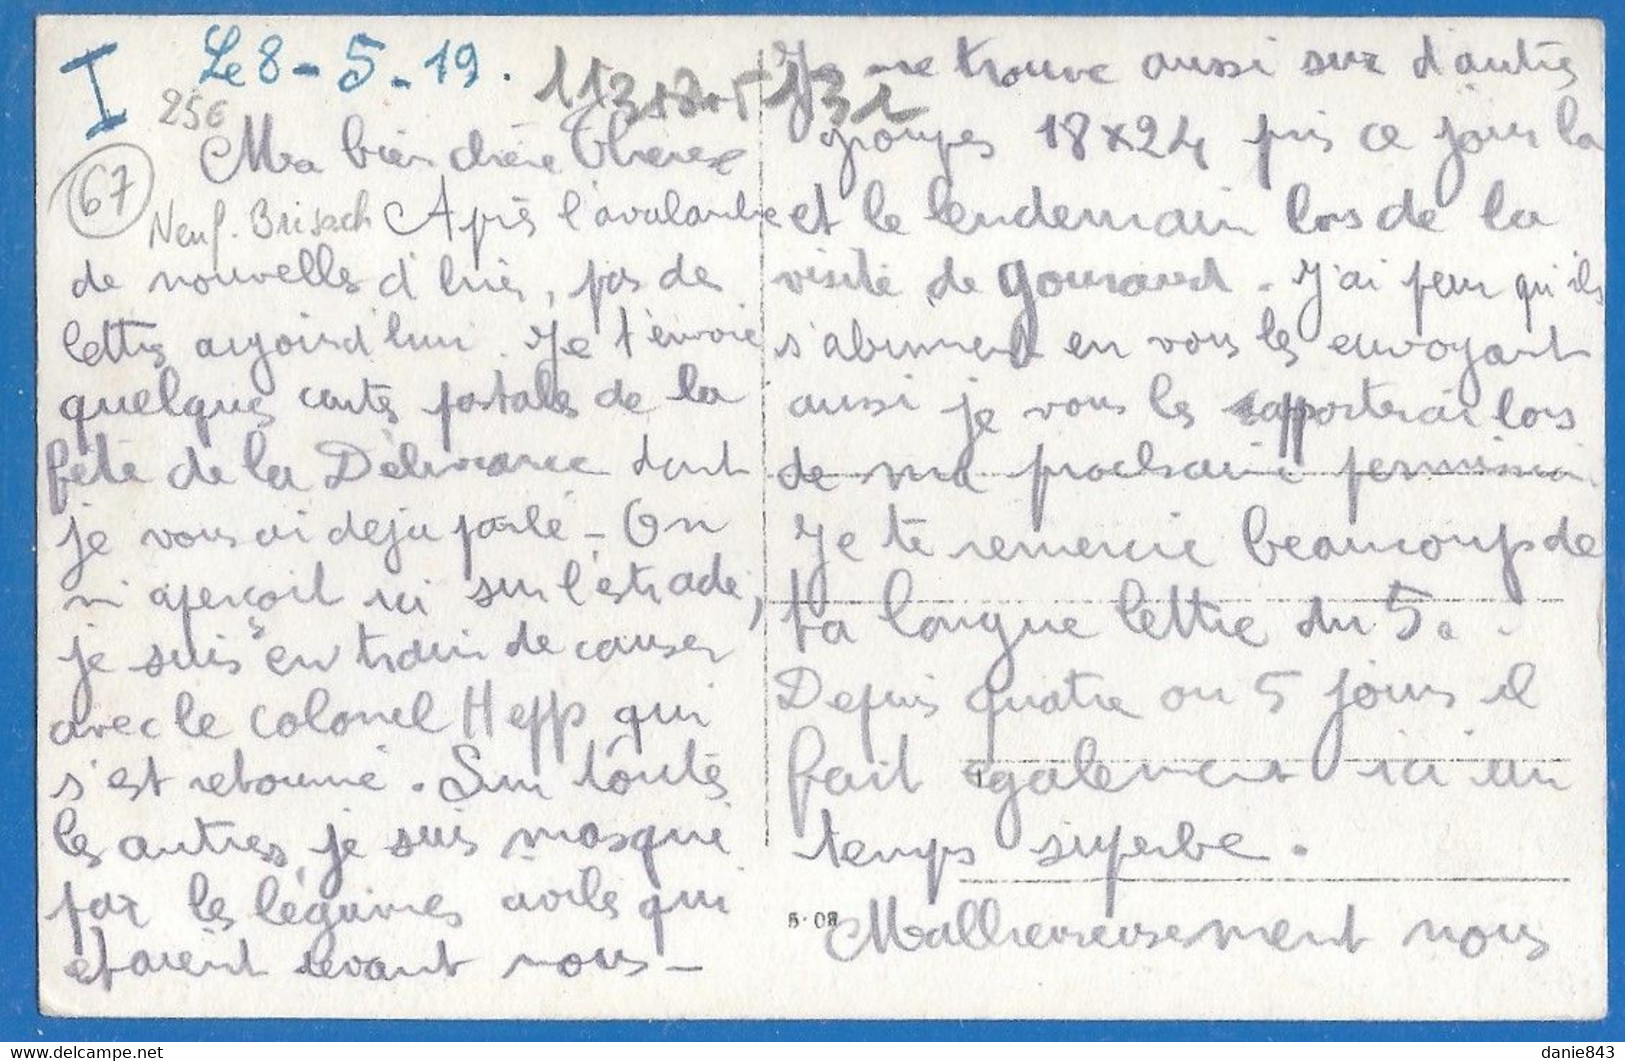 I
Le 8-5-19.
25€
67
Neuf-Brisach
Ma bien chère Therese
Après l'avalanche
de nouvelles d'hier, pas de
lettres aujourd'hui. Je t'envoie
quelques cartes postales de la
fête de la Délivrance dont
je vous ai deja parlé - On
m'aperçoit ici sur l'estrade,
je suis en train de causer
avec le colonel Hepp qui
s'est retourné. Sur toutes
les autres, je suis masqué
par les légumes civils qui
etaient devant nous -
Je me trouve aussi sur d'autres
groupes 18x24 pris ce jour la
et le lendemain lors de la
visite de Gouraud. J'ai peur qu'ils
s'abiment en vous les envoyant
aussi je vous les rapporterai lors
de ma prochaine permission.
Je te remercie beaucoup de
ta longue lettre du 5.
Depuis quatre ou 5 jours il
fait egalement ici un
temps superbe.
Malheureusement nous
danie843